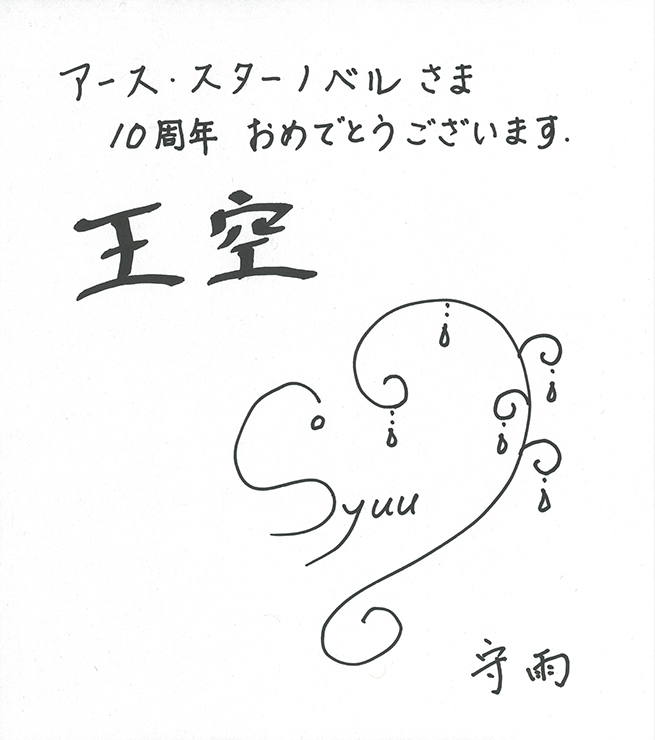 アース・スターノベル さま
10周年 おめでとうございます.
王空
Syuu
守雨